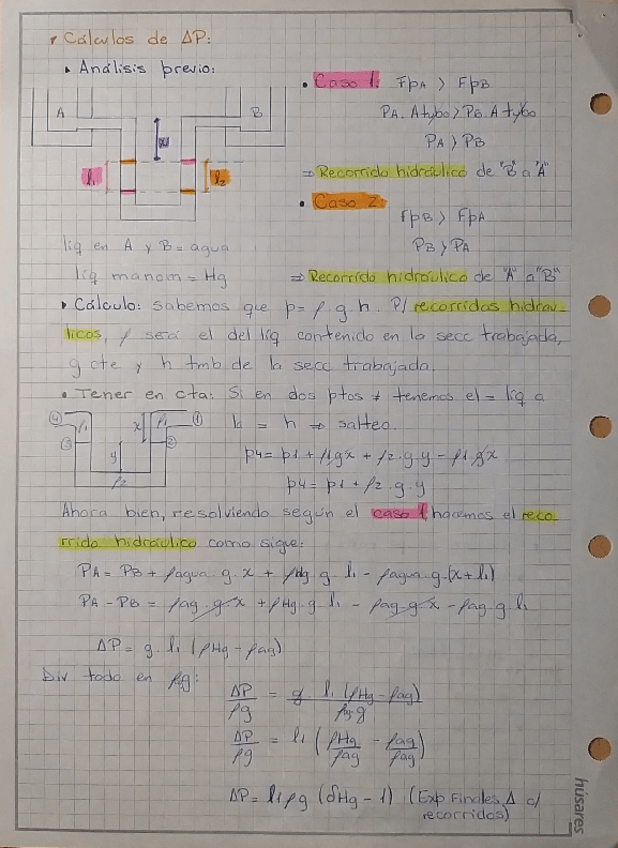 Cálculos de ΔP:
• Análisis previo:
• Caso 1: FpA > FpB
PA. Atubo > PB. A tubo
PA > PB
⇒ Recorrido hidráulico de "B" a "A"
• Caso 2
FpB > FpA
PB > PA
⇒ Recorrido hidráulico de "A" a "B"
A
B
x
l1
l2
líq en A y B = agua
líq manom = Hg
• Cálculo: sabemos que p = ρ g h. P/ recorridos hidráu-
licos, ρ será el del líq contenido en la secc trabajada,
g cte y h tmb de la secc trabajada.
• Tener en cta: Si en dos ptos ≠ tenemos el = líq a
la = h ⇒ salteo.
4 ρ1 x ρ1 1
3 y 2
ρ2
p4 = p1 + ρ1gx + ρ2.g.y - ρ1.gx
p4 = p1 + ρ2.g.y
Ahora bien, resolviendo según el caso 1, hacemos el reco-
rrido hidráulico como sigue:
PA = PB + ρagua g.x + ρHg g l1 - ρagua g.(x+l1)
PA - PB = ρag g x + ρHg g l1 - ρag g x - ρag g l1
ΔP = g. l1 (ρHg - ρag)
Div todo en ρg:
ΔP/ρg = g. l1 (ρHg - ρag)/ρag g
ΔP/ρg = l1 (ρHg/ρag - ρag/ρag)
ΔP = l1 ρg (δHg - 1) (Exp Finales Δ c/
recorridos)
húsares